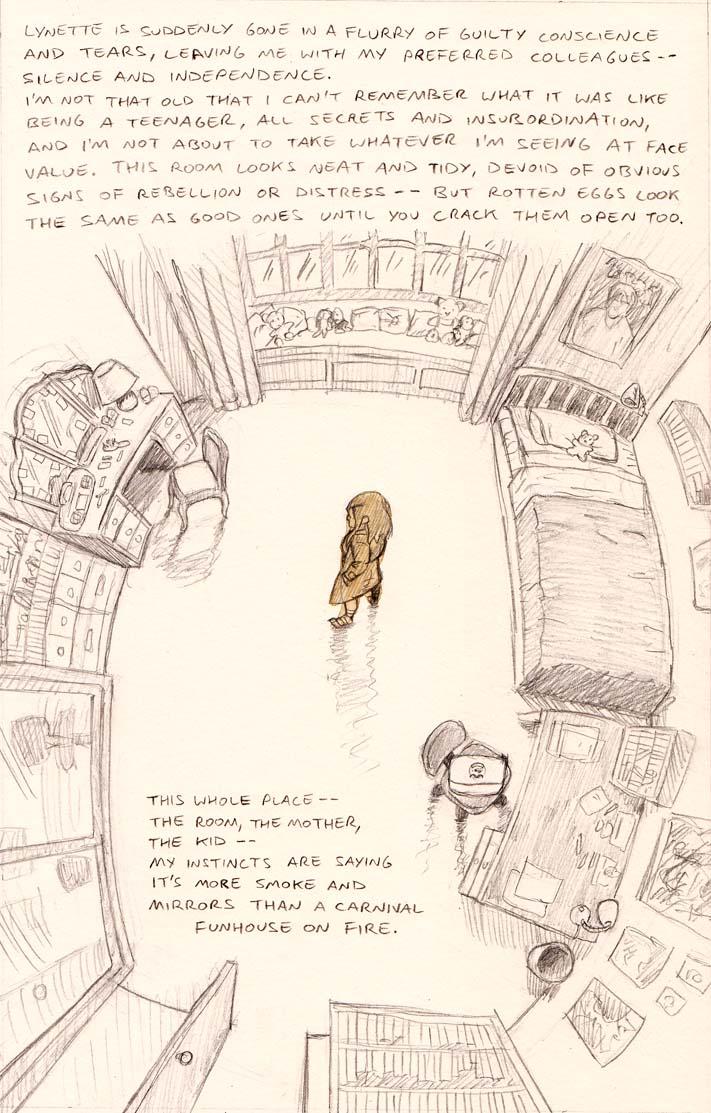 LYNETTE IS SUDDENLY GONE IN A FLURRY OF GUILTY CONSCIENCE
AND TEARS, LEAVING ME WITH MY PREFERRED COLLEAGUES--
SILENCE AND INDEPENDENCE.
I'M NOT THAT OLD THAT I CAN'T REMEMBER WHAT IT WAS LIKE
BEING A TEENAGER, ALL SECRETS AND INSUBORDINATION,
AND I'M NOT ABOUT TO TAKE WHATEVER I'M SEEING AT FACE
VALUE. THIS ROOM LOOKS NEAT AND TIDY, DEVOID OF OBVIOUS
SIGNS OF REBELLION OR DISTRESS -- BUT ROTTEN EGGS LOOK
THE SAME AS GOOD ONES UNTIL YOU CRACK THEM OPEN TOO.
THIS WHOLE PLACE --
THE ROOM, THE MOTHER,
THE KID --
MY INSTINCTS ARE SAYING
IT'S MORE SMOKE AND
MIRRORS THAN A CARNIVAL
FUNHOUSE ON FIRE.